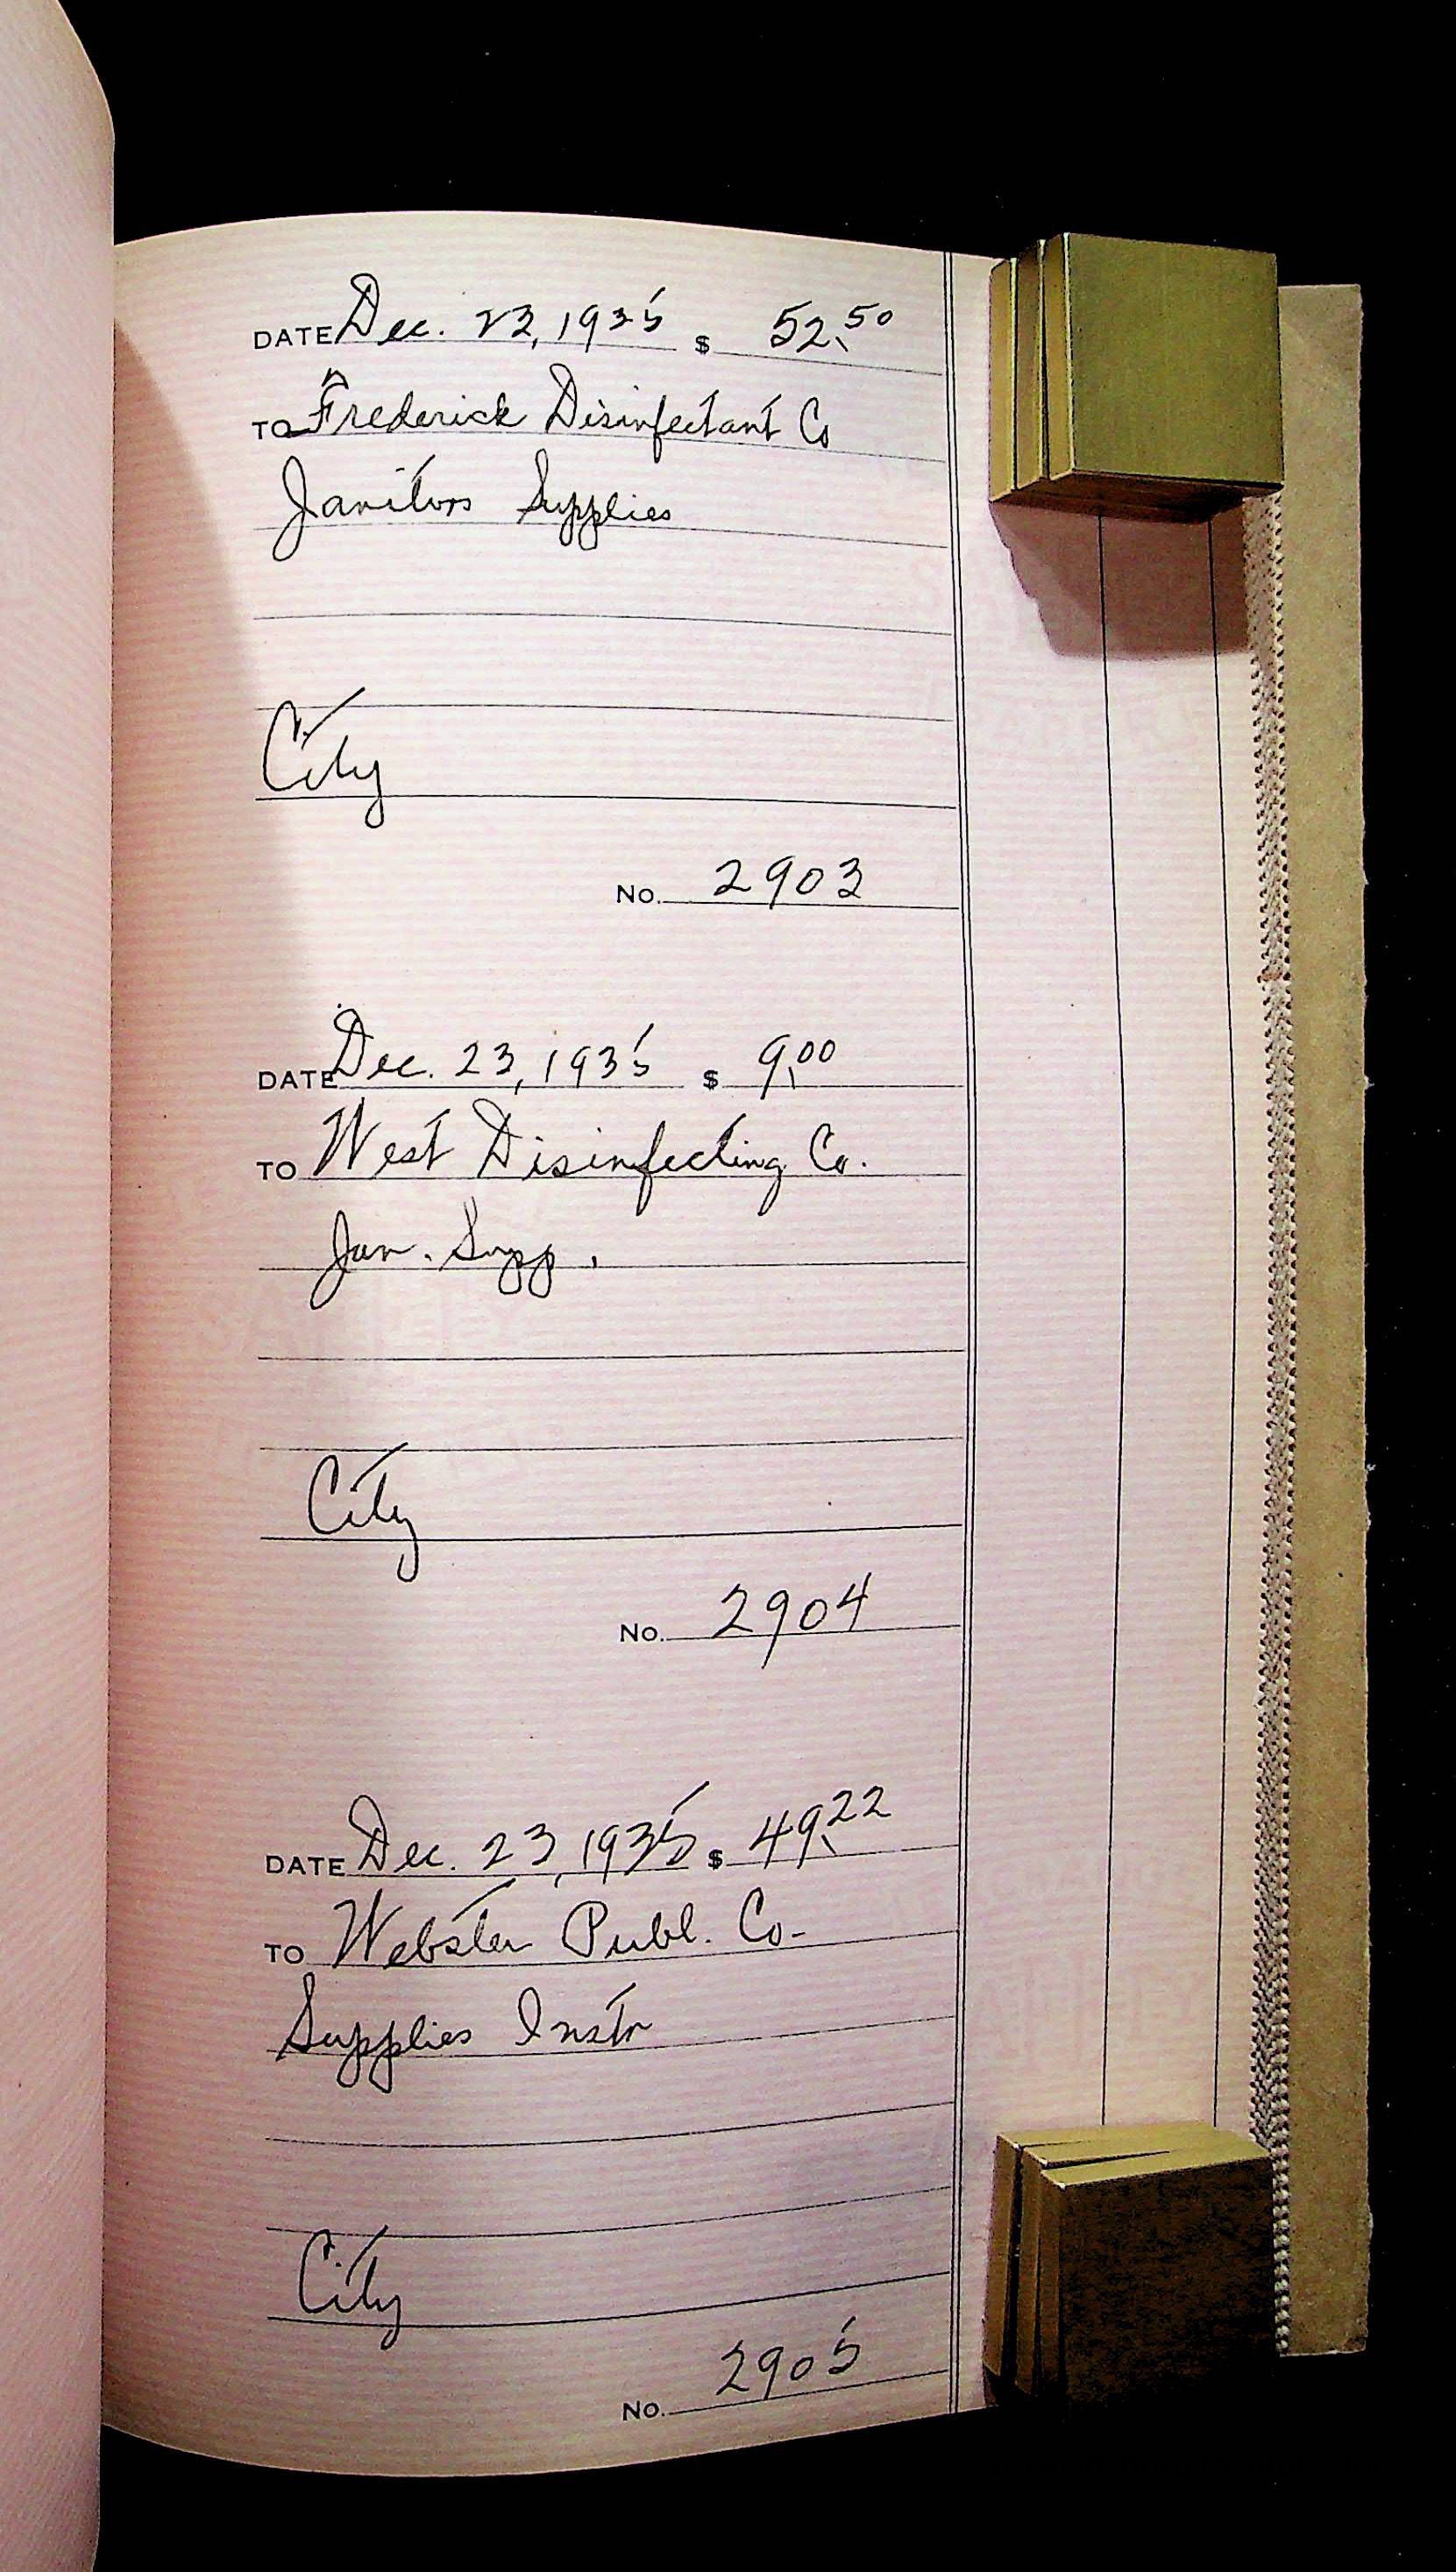 DATE Dec. 23, 1935 $ 52.50
TO Frederick Disinfectant Co
Janitors Supplies
City
No. 2903
DATE Dec. 23, 1935 $ 9.00
TO West Disinfecting Co.
Jan. Supp.
City
No. 2904
DATE Dec. 23, 1935 $ 49.22
TO Webster Publ. Co.
Supplies Instr
City
No. 2905